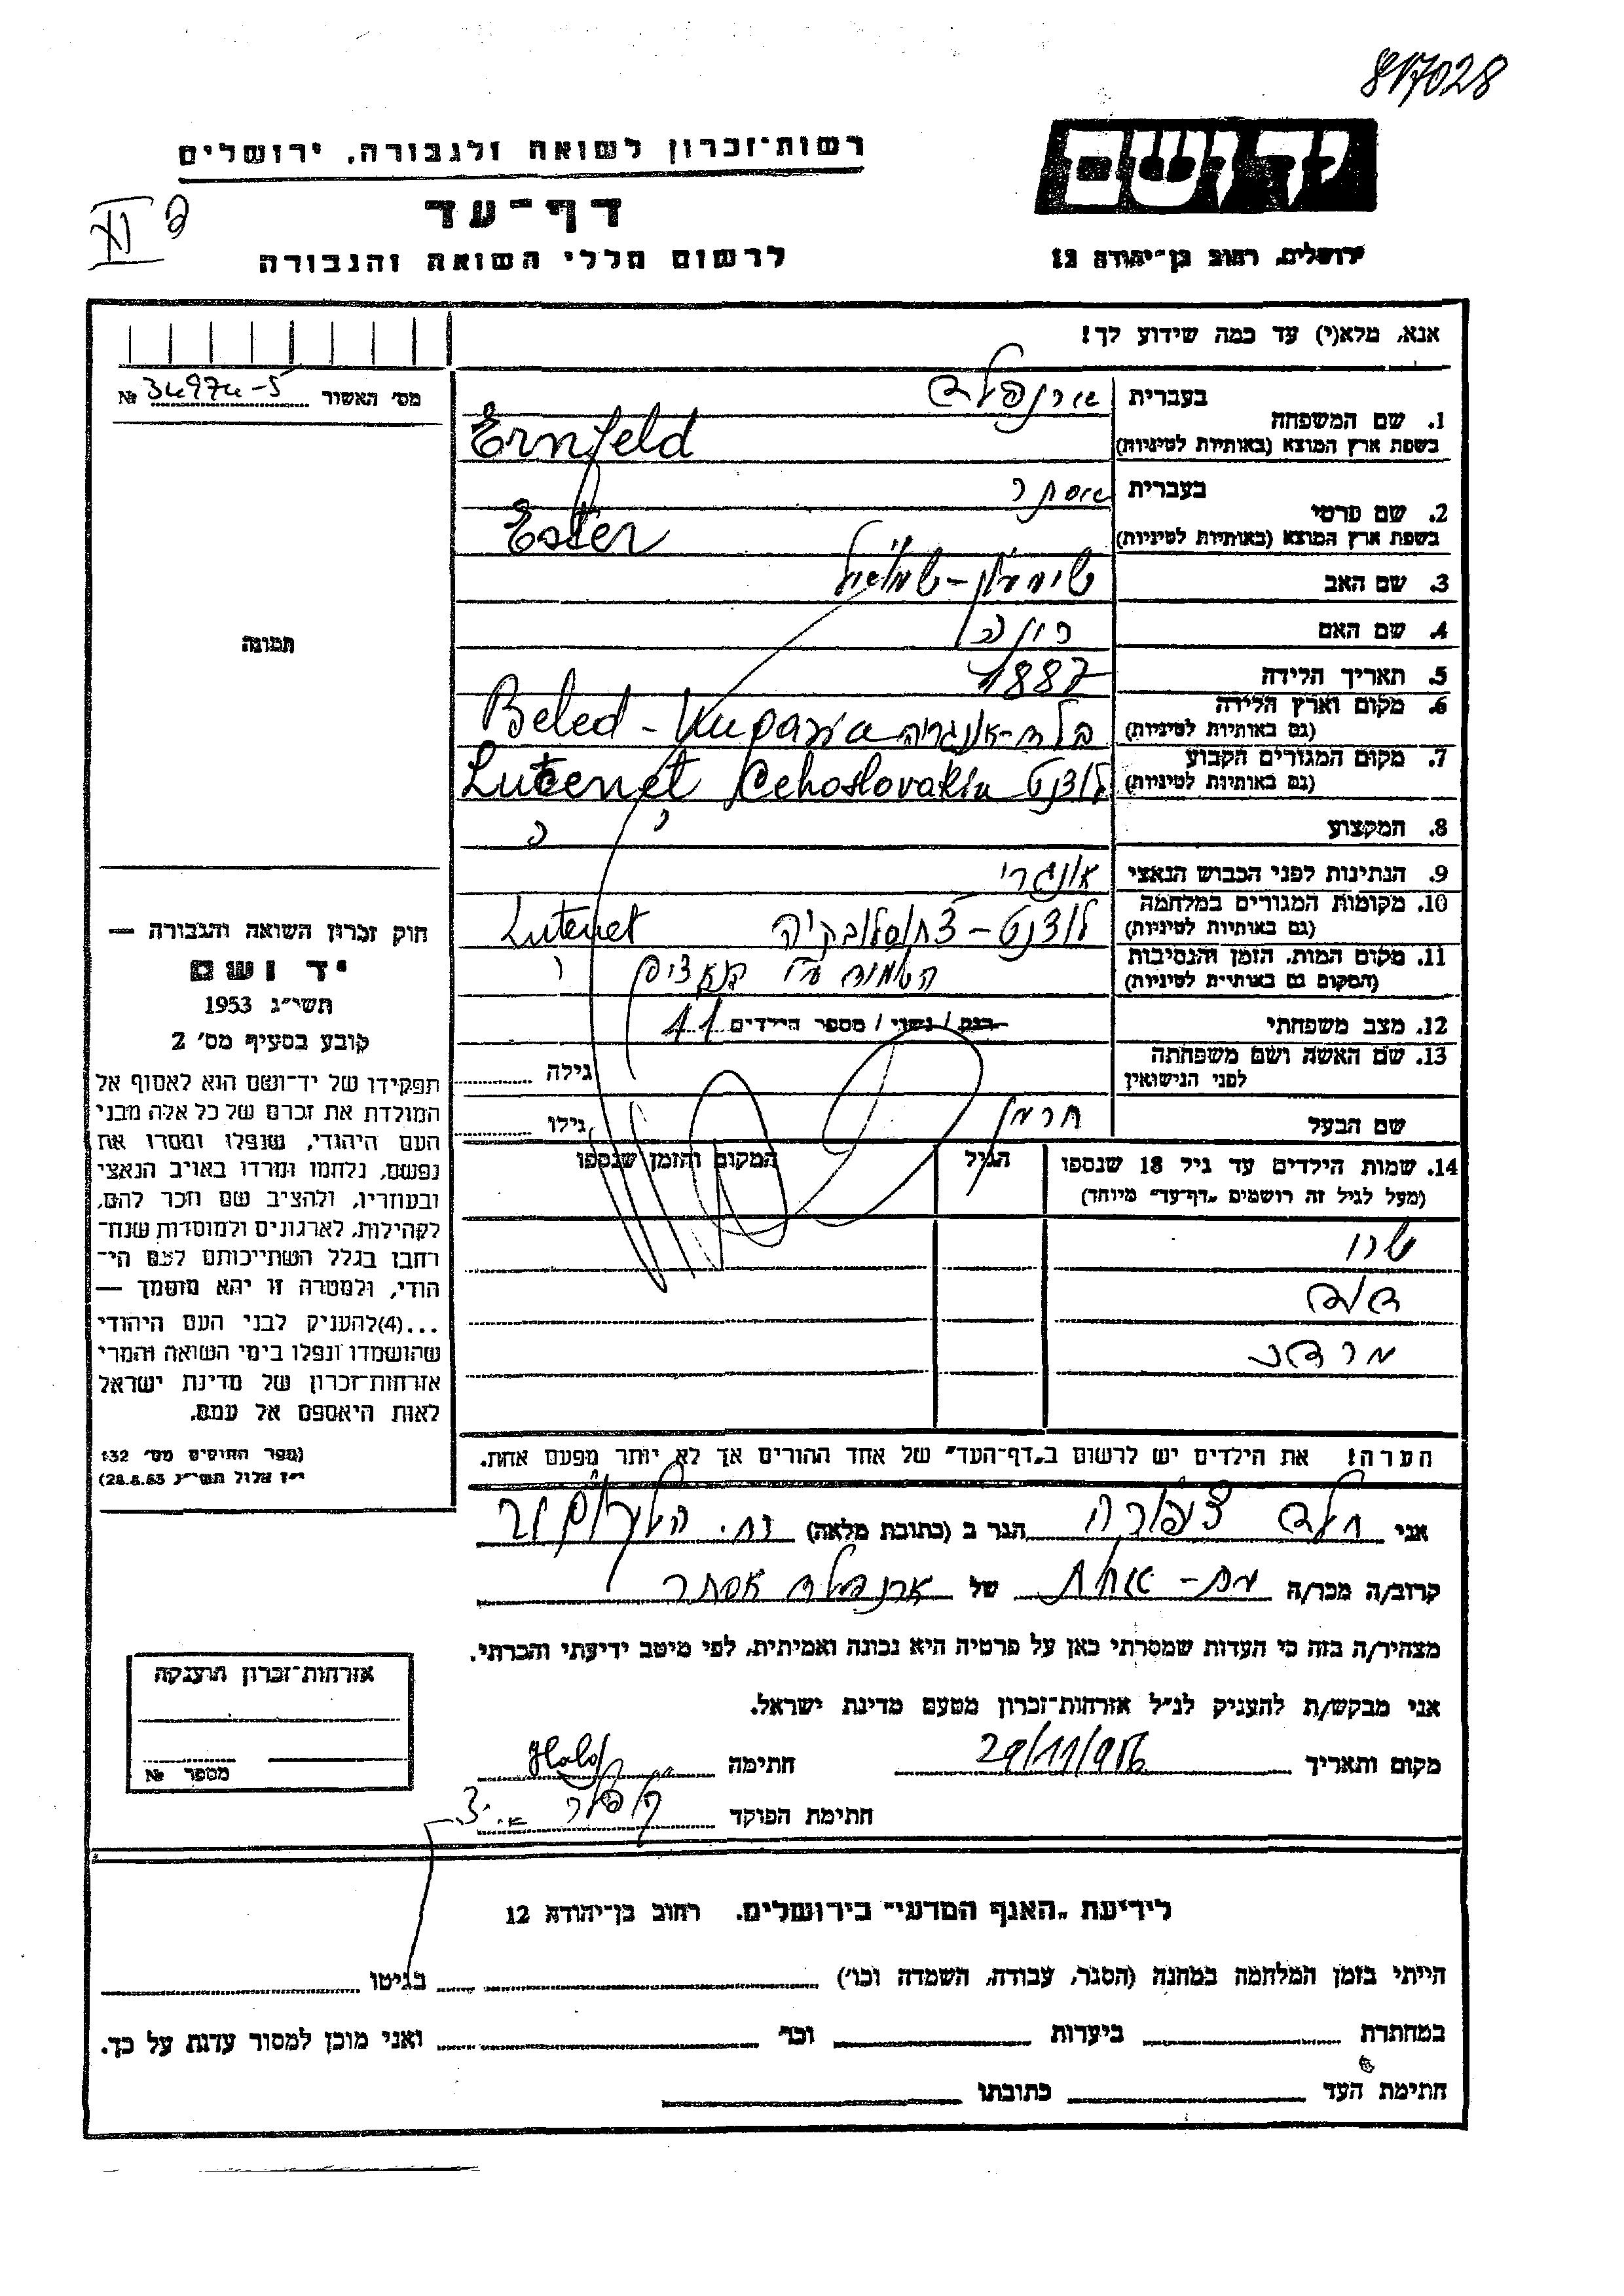 817028
יד ושם
רשות־זכרון לשואה ולגבורה, ירושלים
דף־עד
לרשום חללי השואה והגבורה
ירושלים, רחוב בן־יהודה 12
אנא, מלא(י) עד כמה שידוע לך!
מס׳ האשור 34974-5 №
1. שם המשפחה
בעברית ארנפלד
בשפת ארץ המוצא (באותיות לטיניות) Ernfeld
2. שם פרטי
בעברית אסתר
בשפת ארץ המוצא (באותיות לטיניות) Ester
3. שם האב שימעון-שמואל
4. שם האם
5. תאריך הלידה 1887
6. מקום וארץ הלידה
(גם באותיות לטיניות) בלד-אונגריה Beled -
7. מקום המגורים הקבוע
(גם באותיות לטיניות) לוצנט Lucenet Cehoslovakia
8. המקצוע
9. הנתינות לפני הכבוש הנאצי אונגרי
10. מקומות המגורים במלחמה
(גם באותיות לטיניות) לוצנט - צ'חוסלובקיה Lutenet
11. מקום המות, הזמן והנסיבות
(המקום גם באותיות לטיניות) ע״י הנאצים
12. מצב משפחתי רווק / נשוי / מספר הילדים 11
13. שם האשה ושם משפחתה
לפני הנישואין
גילה
שם הבעל הרמן
גילו
14. שמות הילדים עד גיל 18 שנספו
(מעל לגיל זה רושמים „דף־עד״ מיוחד)
הגיל
המקום והזמן שנספו
שרו
מרדכי
הערה! את הילדים יש לרשום ב„דף־העד״ של אחד ההורים אך לא יותר מפעם אחת.
תמונה
חוק זכרון השואה והגבורה —
יד ושם
תשי״ג 1953
קובע בסעיף מס׳ 2
תפקידו של יד־ושם הוא לאסוף אל
המולדת את זכרם של כל אלה מבני
העם היהודי, שנפלו ומסרו את
נפשם, נלחמו ומרדו באויב הנאצי
ובעוזריו, ולהציב שם וזכר להם,
לקהילות, לארגונים ולמוסדות שנח־
רבו בגלל השתייכותם לעם הי־
הודי, ולמטרה זו יהא מוסמך —
...(4) להעניק לבני העם היהודי
שהושמדו ונפלו בימי השואה והמרי
אזרחות־זכרון של מדינת ישראל
לאות היאספם אל עמם.
(ספר החוקים מס׳ 132
י״ז אלול תשי״ג 28.8.53)
אני הלד ציפורה הגר ב (כתובת מלאה) רח.
קרוב/ה מכר/ה בת-אחת של ארנפלד אסתר
מצהיר/ה בזה כי העדות שמסרתי כאן על פרטיה היא נכונה ואמיתית, לפי מיטב ידיעתי והכרתי.
אני מבקש/ת להעניק לנ״ל אזרחות־זכרון מטעם מדינת ישראל.
מקום ותאריך 29/11/956 חתימה
חתימת הפוקד
אזרחות־זכרון הוענקה
מספר №
לידיעת „האגף המדעי״ בירושלים, רחוב בן־יהודה 12
הייתי בזמן המלחמה במחנה (הסגר, עבודה, השמדה וכו׳) בגיטו
במחתרת ביערות וכו׳ ואני מוכן למסור עדות על כך.
חתימת העד כתובתו